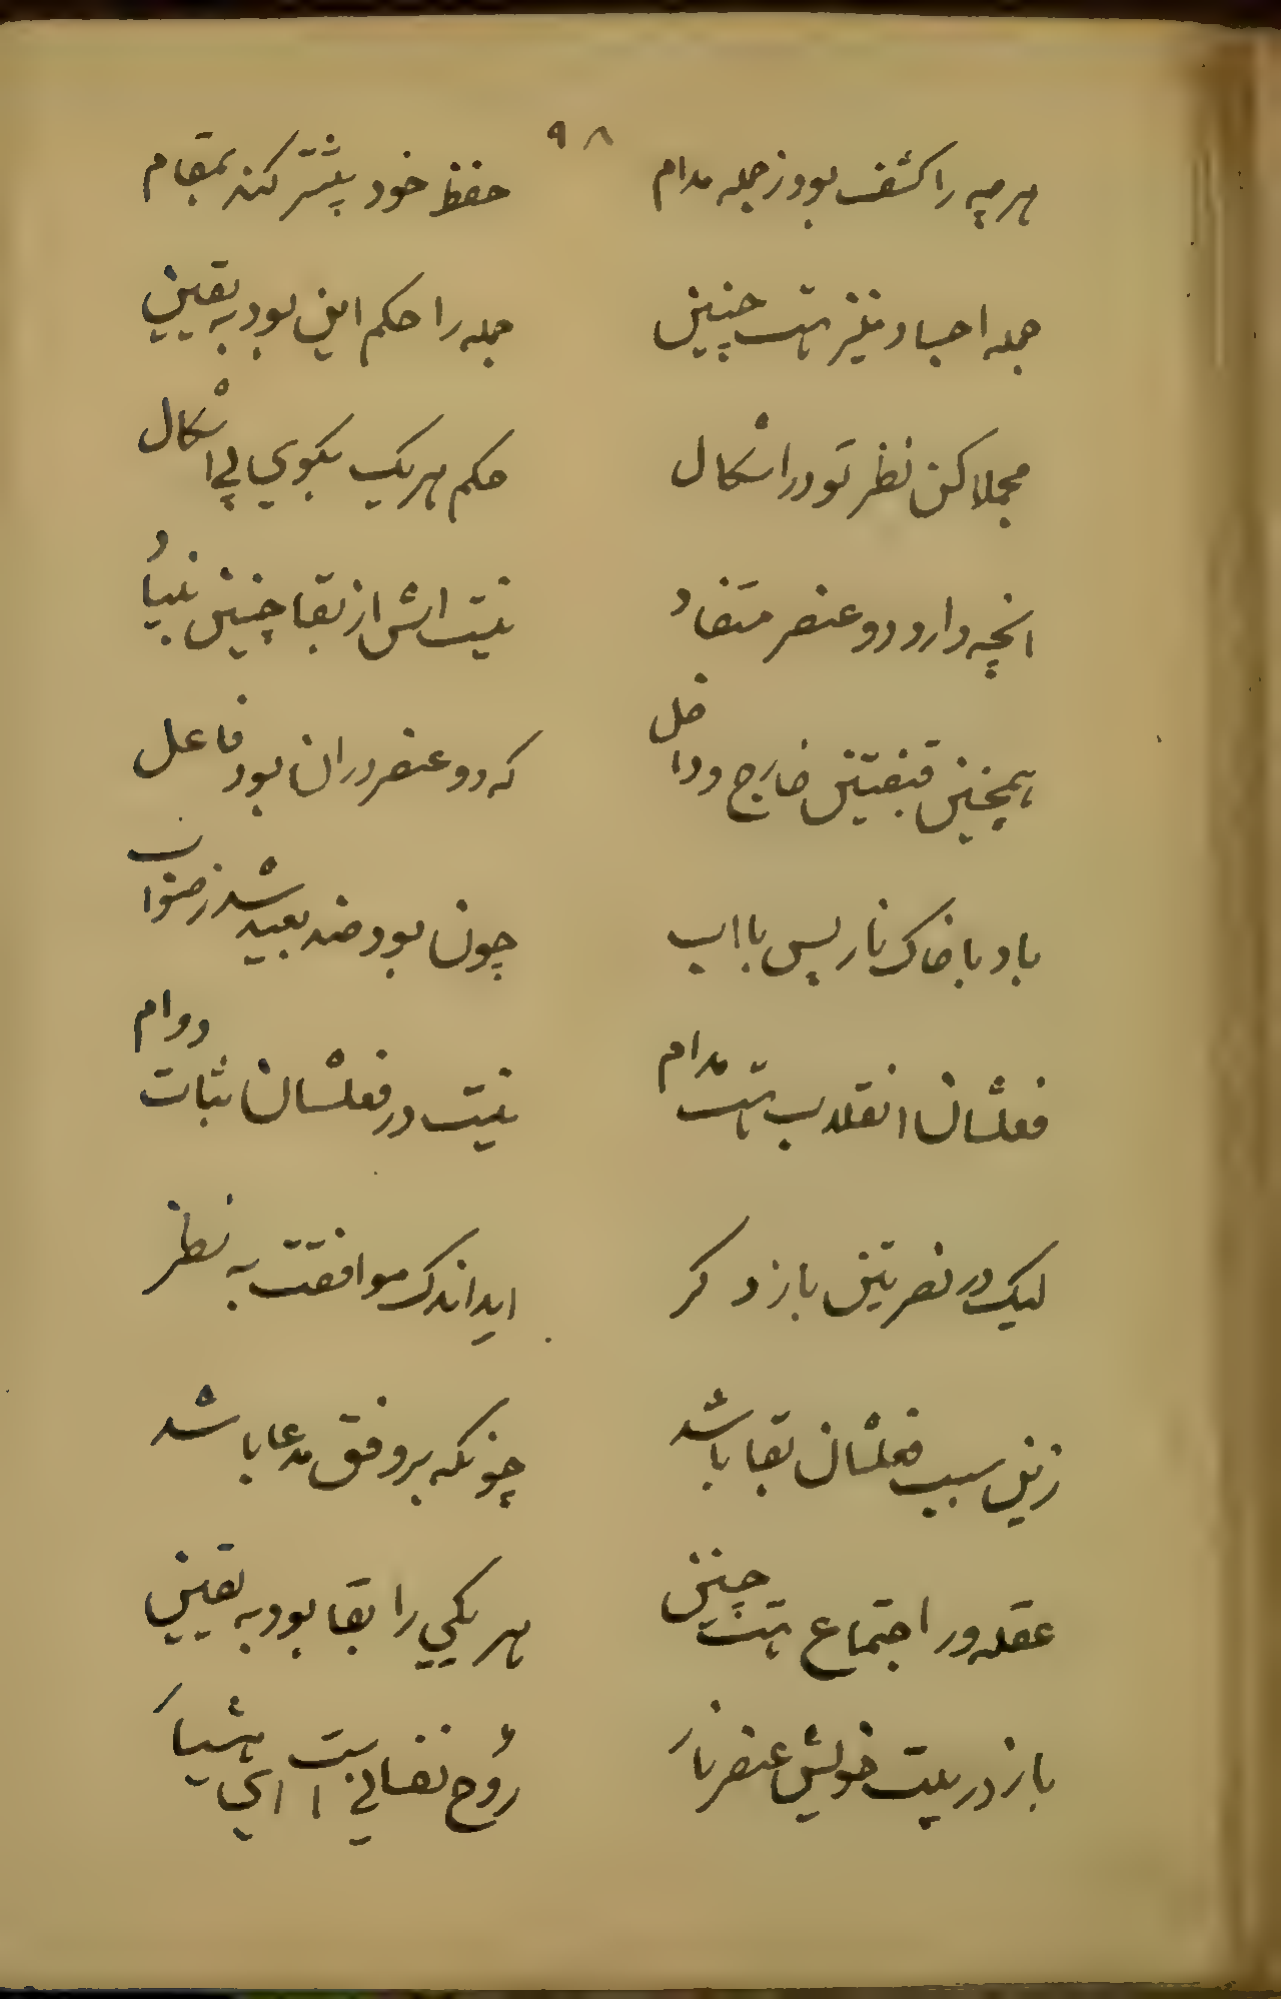 ۹۸
هرچه را کشف بود ز جمله مدام
حفظ خود پیشتر کند بمقام
جمله اجساد نیز هست چنین
جمله را حکم این بود به یقین
مجملا کن نظر تو در اشکال
حکم هر یک بکوي بی اشکال
انچه دارد دو عنصر متضاد
نیست اتش از بقا چنین بنیاد
همچنین قبضتین خارج و داخل
که دو عنصر دران بود فاعل
باد با خاک نار پس با اب
چون بود ضد بعید شد ز صواب
فعلشان انقلاب هست مدام
نیست در فعلشان ثبات دوام
لیک در نصرتین باز دکر
اید اندک موافقت به نظر
زین سبب فعلشان بقا باشد
چونکه بر وفق مدعا باشد
عقله ور اجتماع هست چنین
هر یکی را بقا بود به یقین
باز در بیت خویش عنصر نار
روح نفسانی است ای هشیار